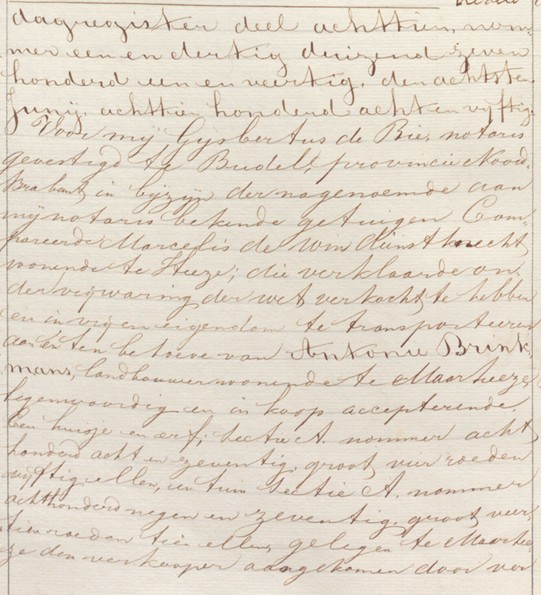 dagregister deel achttien, nom-
mer een en dertig duizend zeven
honderd een en veertig, den achtsten
Junij, achttien honderd acht en vyftig.
Voor mij Gysbertus de Bie, notaris
gevestigd te Budel, provincie Noord-
Brabant, in bijzijn der nagenoemde aan
mij notaris bekende getuigen Com-
pareerde Marcelis de Win dienstknecht,
wonende te Heeze; die verklaarde on-
der vrijwaring der wet verkocht te hebben
en in vrijen eigendom te transporteren
aan en ten behoeve van Antonie Brink-
mans, landbouwer wonende te Maarheeze
tegenwoordig en in koop accepterende.
Een huisje en erf, sectie A. nommer acht-
honderd acht en zeventig, groot vier roeden
vijftig ellen, een tuin sectie A. nommer
achthonderd negen en zeventig, groot veer-
tien roeden tien ellen, gelegen te Maarhee-
ze den verkooper aangekomen door ver-